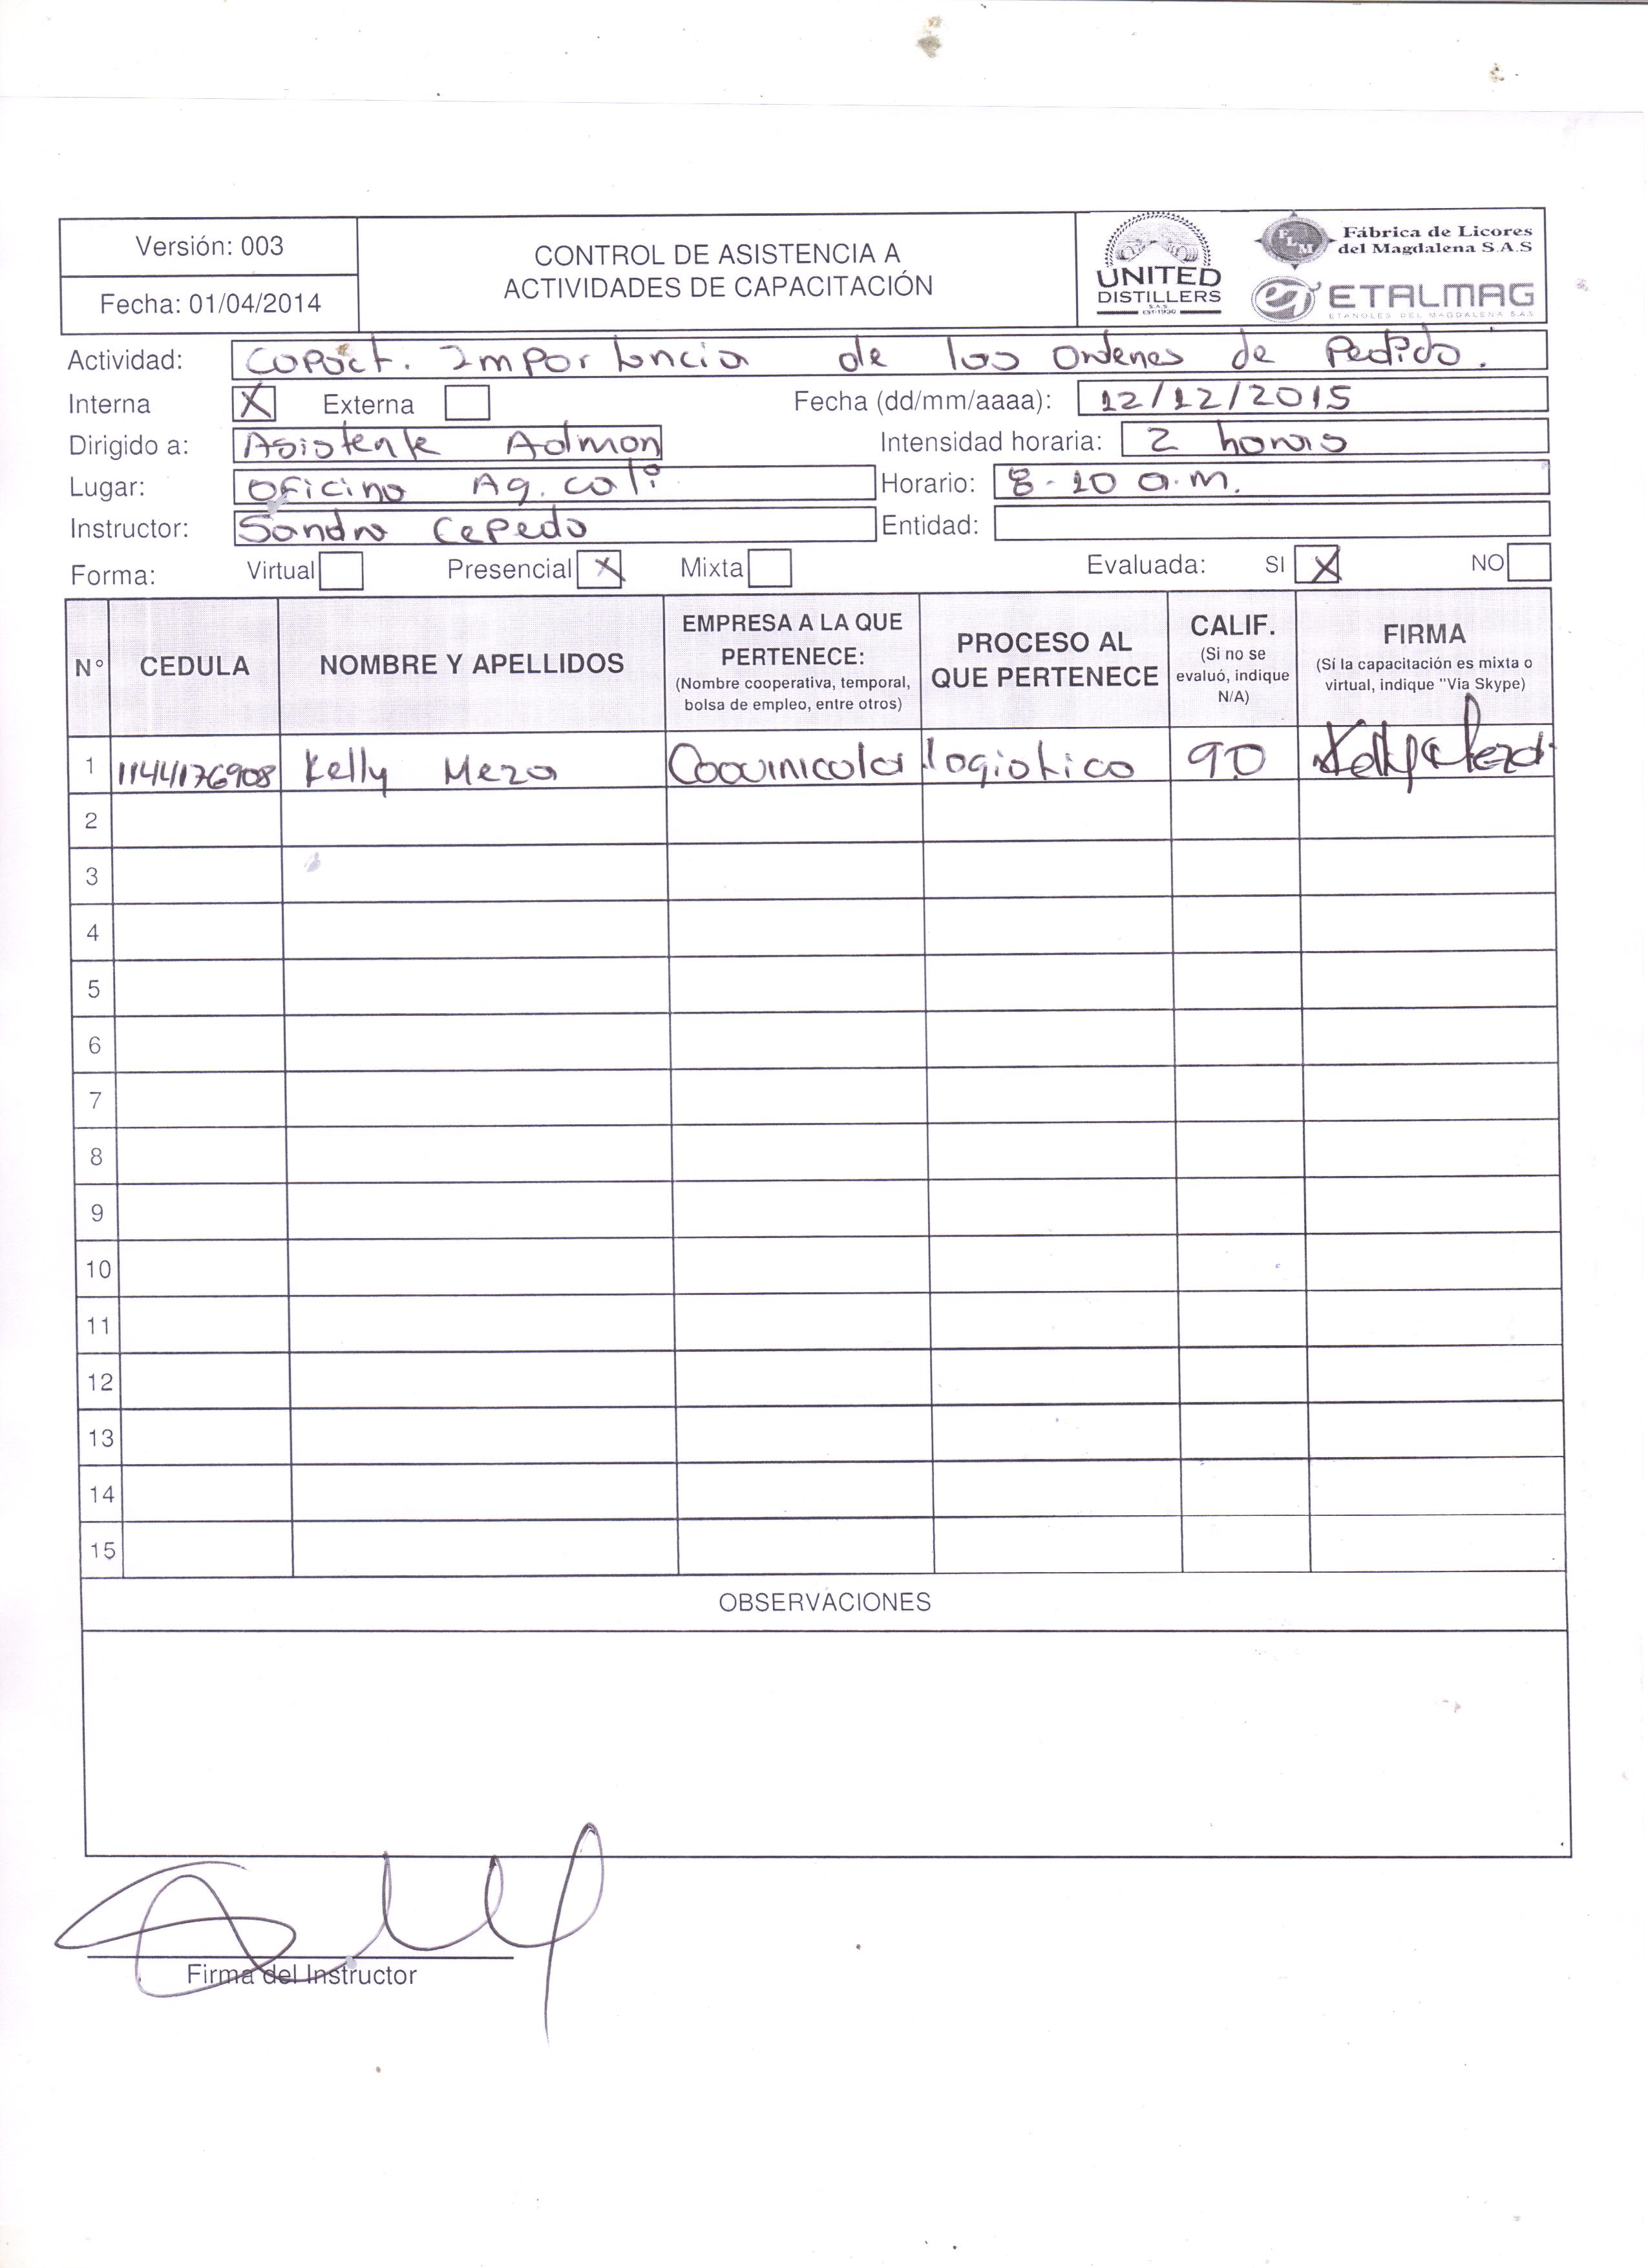 Versión: 003
CONTROL DE ASISTENCIA A
ACTIVIDADES DE CAPACITACIÓN
Fecha: 01/04/2014
UNITED
DISTILLERS
S.A.S
EST·1930
FLM
Fábrica de Licores
del Magdalena S.A.S
ETALMAG
ETANOLES DEL MAGDALENA S.A.S
Actividad: Capact. Importancia de las Ordenes de Pedido.
Interna X Externa Fecha (dd/mm/aaaa): 12/12/2015
Dirigido a: Asistente Admon Intensidad horaria: 2 horas
Lugar: Oficina Ag. cali Horario: 8-10 a.m.
Instructor: Sandra Cepeda Entidad:
Forma: Virtual Presencial X Mixta Evaluada: SI X NO
N° CEDULA NOMBRE Y APELLIDOS EMPRESA A LA QUE PERTENECE: (Nombre cooperativa, temporal, bolsa de empleo, entre otros) PROCESO AL QUE PERTENECE CALIF. (Si no se evaluó, indique N/A) FIRMA (Si la capacitación es mixta o virtual, indique "Via Skype)
1 1144176908 Kelly Meza logistica 90
2
3
4
5
6
7
8
9
10
11
12
13
14
15
OBSERVACIONES
Firma del Instructor